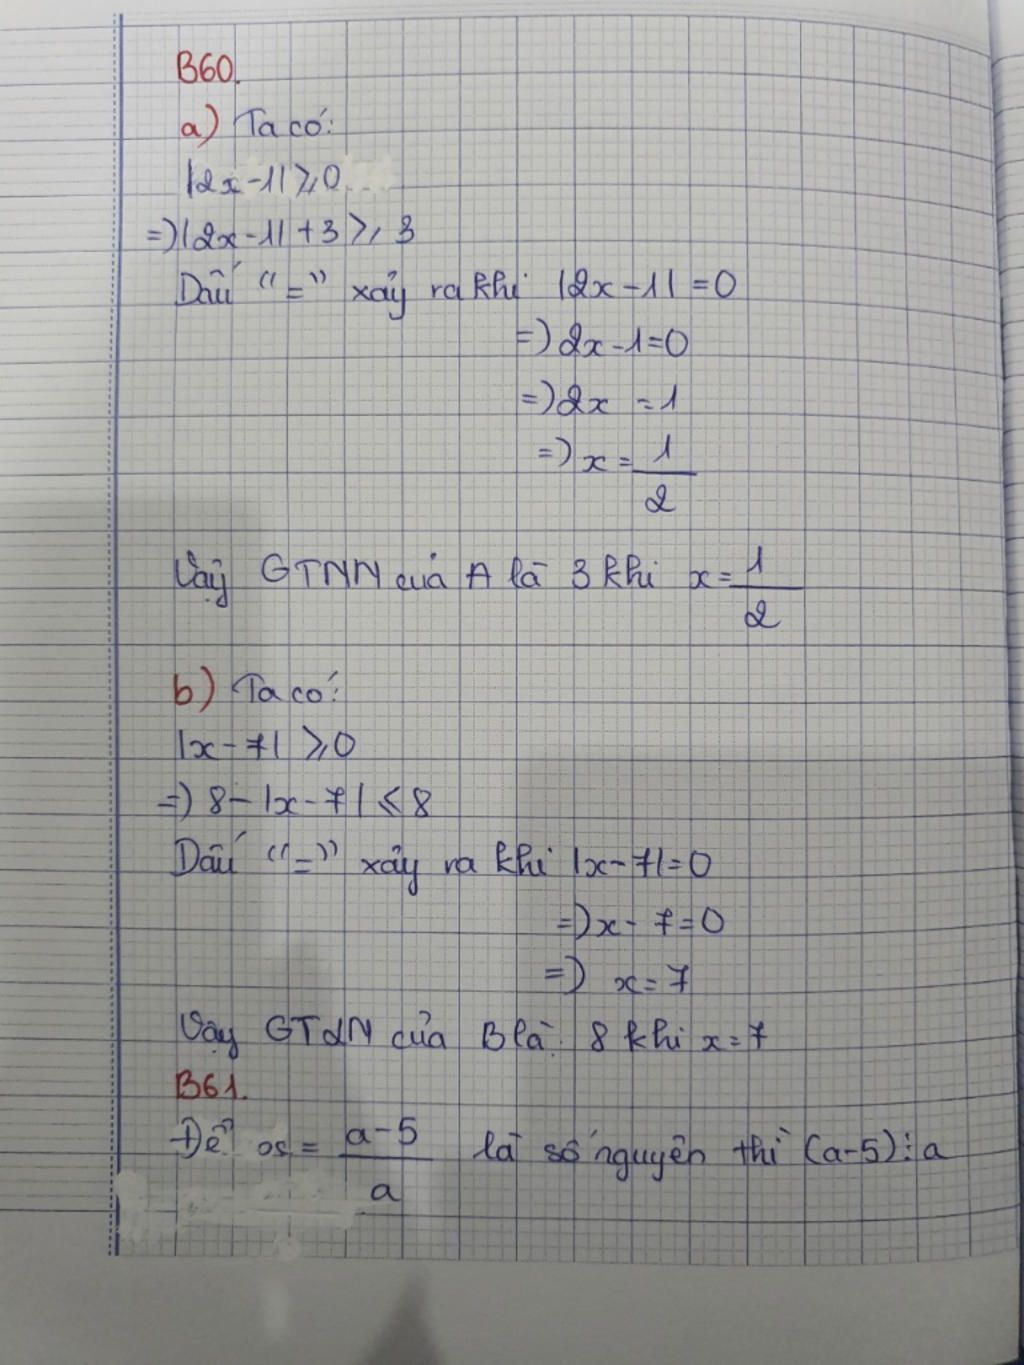 B60.
a) Ta có:
|2x-1| ⩾ 0
=) |2x-1| + 3 ⩾ 3
Dấu "=" xảy ra khi |2x-1| = 0
=) 2x-1=0
=) 2x = 1
=) x = 1/2
Vậy GTNN của A là 3 khi x = 1/2
b) Ta có:
|x-7| ⩾ 0
=) 8 - |x-7| ⩽ 8
Dấu "=" xảy ra khi |x-7| = 0
=) x-7=0
=) x=7
Vậy GTLN của B là 8 khi x=7
B61.
Để x = a-5/a là số nguyên thì (a-5)⋮a